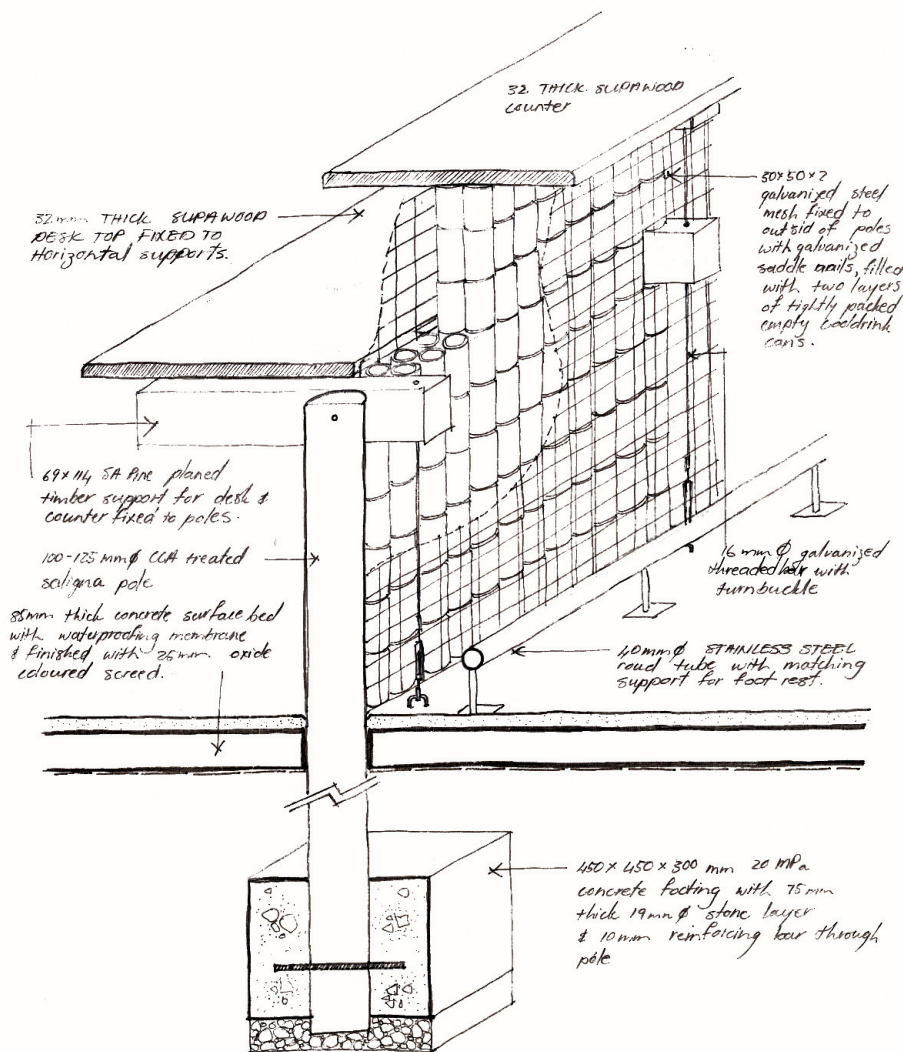 32 THICK SUPAWOOD
counter
32mm THICK SUPAWOOD
DESK TOP FIXED TO
Horizontal supports.
50x50x2
galvanized steel
mesh fixed to
outsid of poles
with galvanized
saddle nails, filled
with two layers
of tightly packed
empty cooldrink
cans.
69x114 SA Pine planed
timber support for desk &
counter fixed to poles.
100-125 mm Ø CCA treated
saligna pole
85mm thick concrete surface bed
with waterproofing membrane
& finished with 25mm oxide
coloured screed.
16 mm Ø galvanized
threaded bar with
turnbuckle
40mm Ø STAINLESS STEEL
roud tube with matching
support for foot rest.
450 x 450 x 300 mm 20 MPa
concrete footing with 75mm
thick 19mm Ø stone layer
& 10mm reinforcing bar through
pole